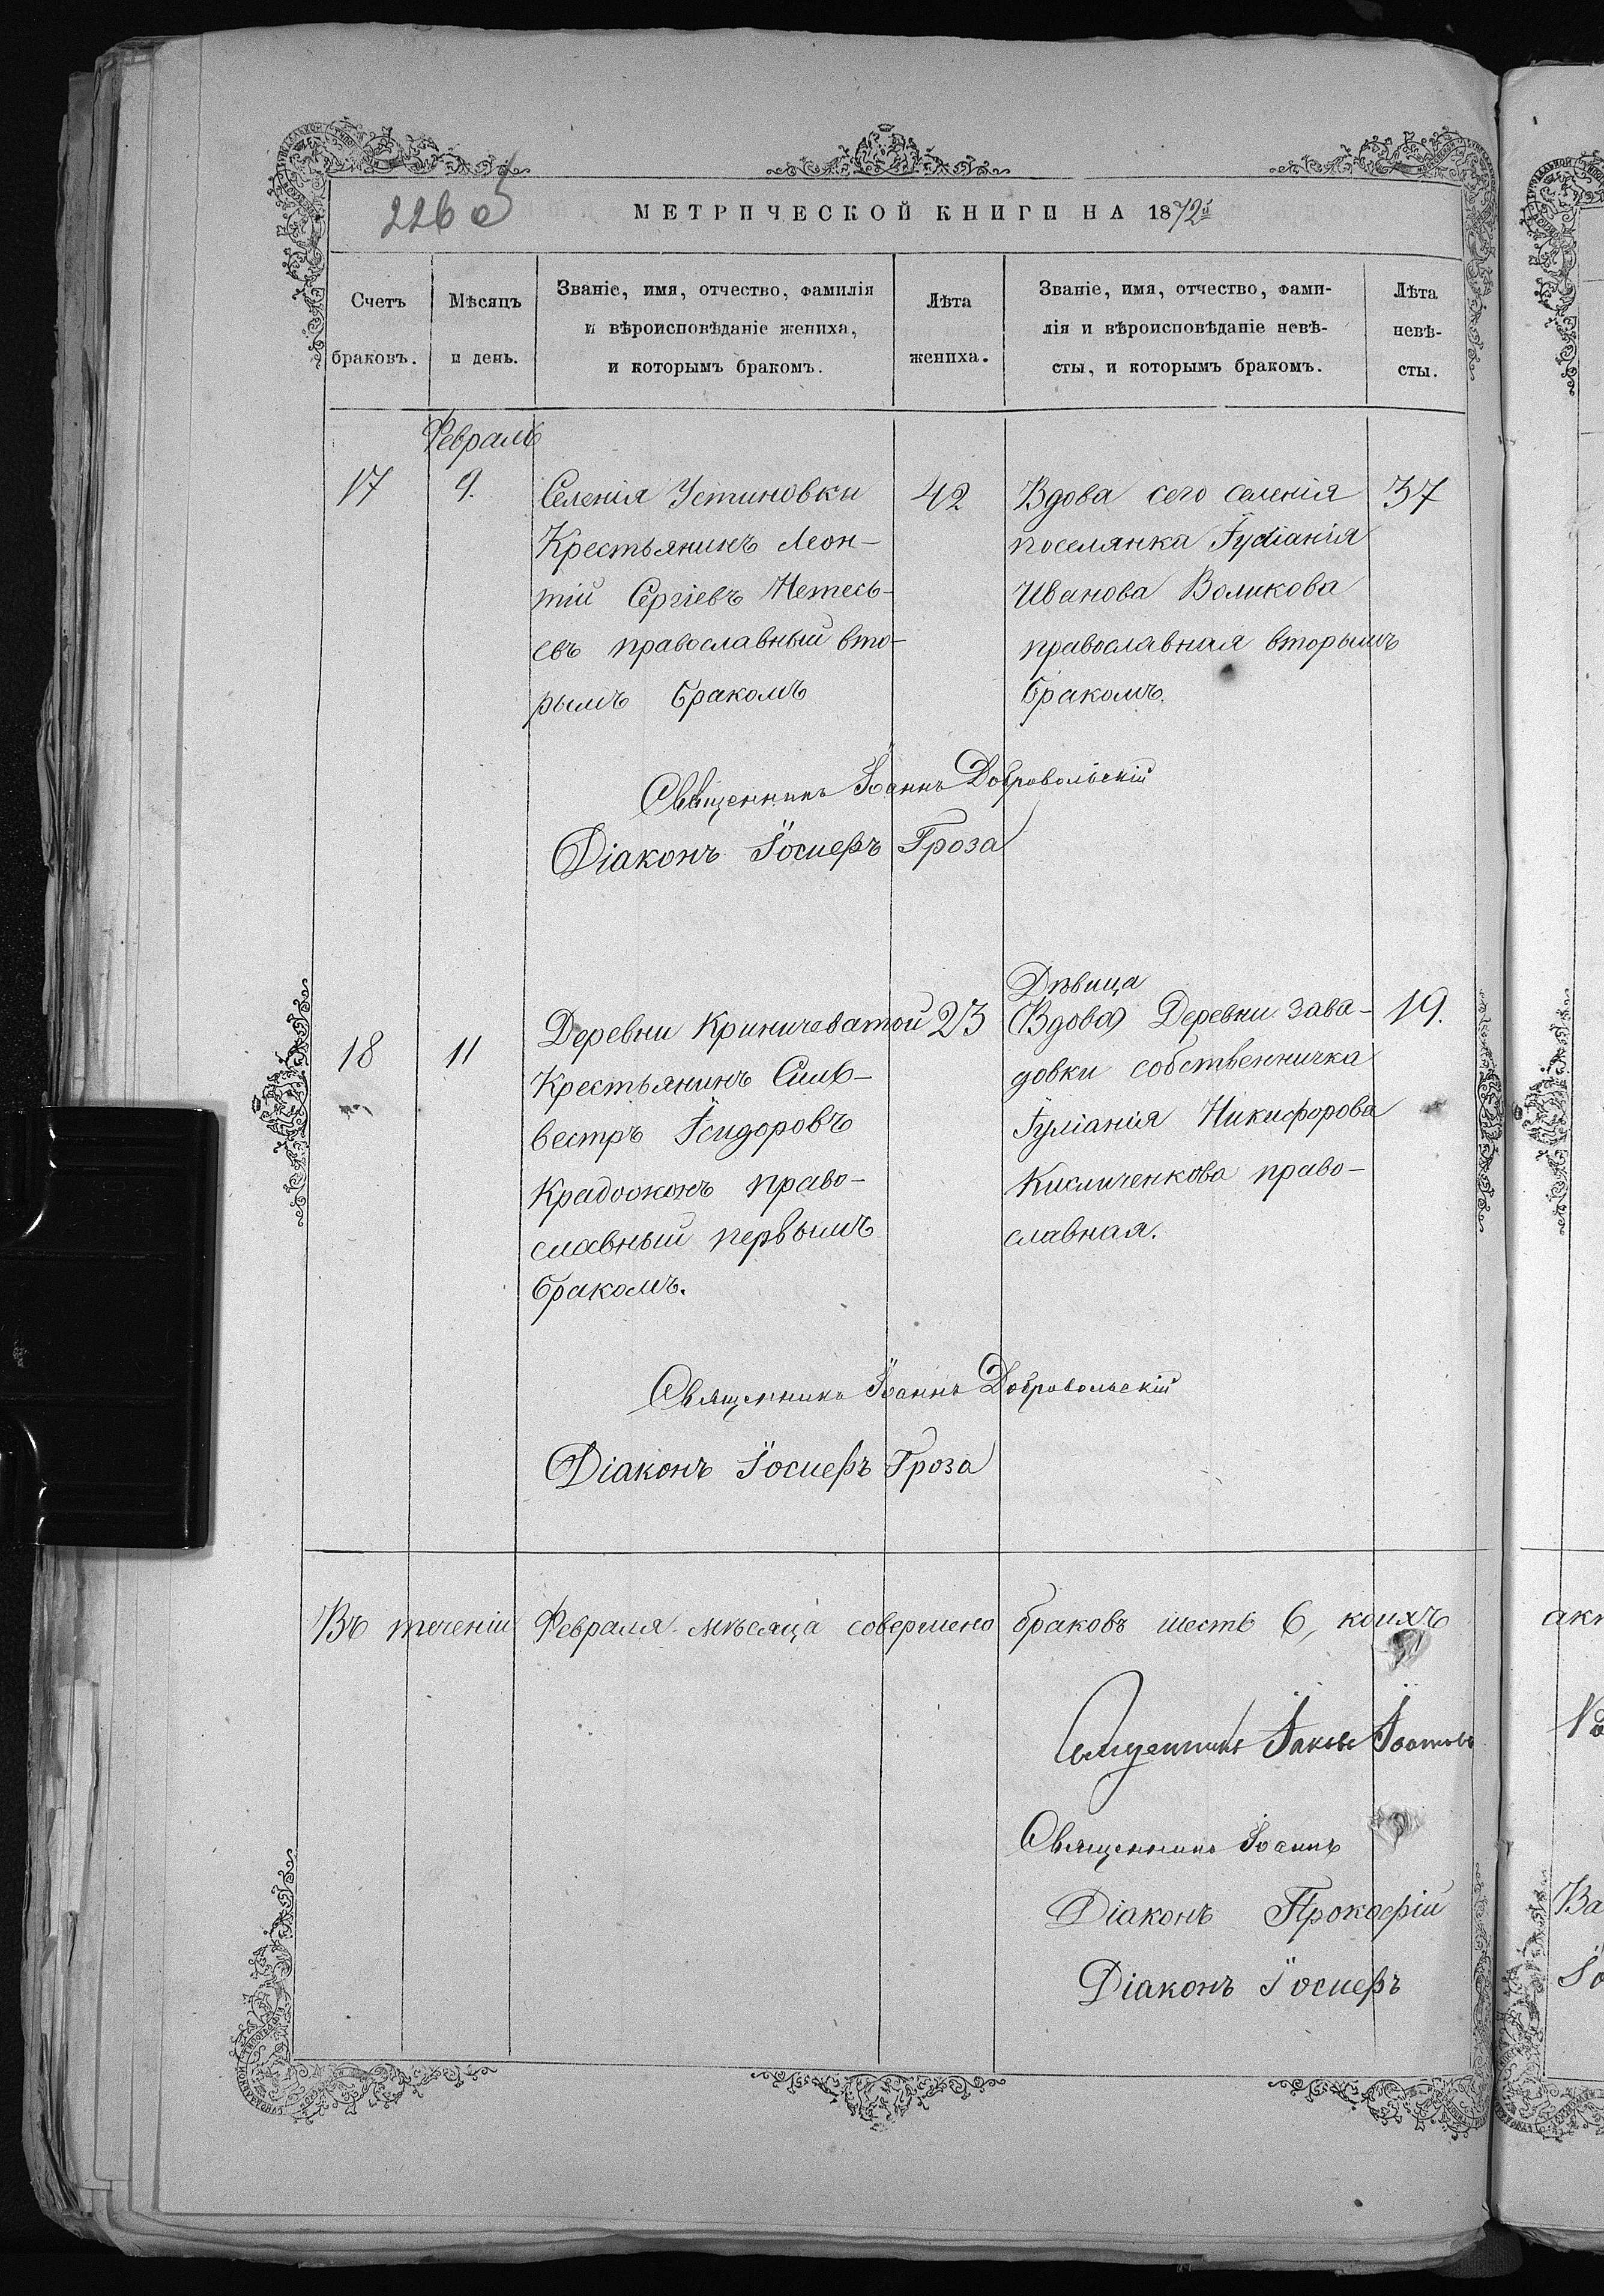 226 об
МЕТРИЧЕСКОЙ КНИГИ НА 1872й
Счетъ браковъ.
Мѣсяцъ и день.
Званіе, имя, отчество, фамилія
и вѣроисповѣданіе жениха,
и которымъ бракомъ.
Лѣта жениха.
Званіе, имя, отчество, фами-
лія и вѣроисповѣданіе невѣ-
сты, и которымъ бракомъ.
Лѣта невѣ-
сты.
Февраль
17
9.
Селенія Устиновки
Крестьянинъ Леон-
тій Сергіевъ Нетесь-
евъ православный вто-
рымъ бракомъ
42
Вдова сего селенія
поселянка Іуліанія
Иванова Воликова
православная вторымъ
бракомъ.
37
Священникъ Іоаннъ Добровольскій
Діаконъ Іосифъ Гроза
18
11
Деревни Криничеватой
Крестьянинъ Силь-
вестръ Ісидоровъ
Крадоожонъ право-
славный первымъ
бракомъ.
23
Дѣвица
(Вдова) Деревни Зава-
довки собственничка
Іуліанія Никифорова
Кисличенкова право-
славная.
19.
Священникъ Іоаннъ Добровольскій
Діаконъ Іосифъ Гроза
Въ теченіи Февраля мѣсяца совершено браковъ шесть 6, коихъ
Священникъ Іаковъ
Священникъ Іоаннъ
Діаконъ Прокофій
Діаконъ Іосифъ